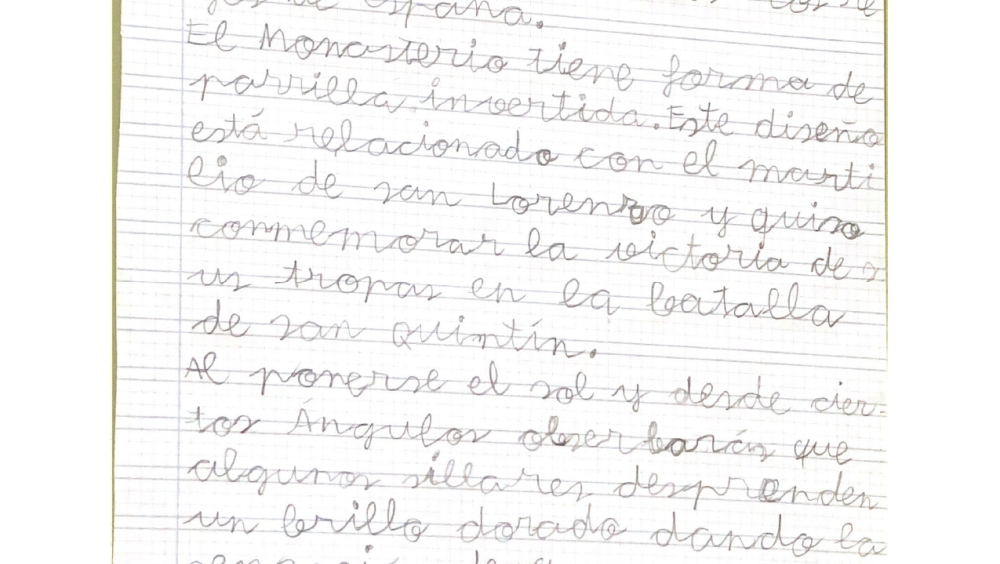 de España.
El Monasterio tiene forma de
parrilla invertida. Este diseño
está relacionado con el marti
rio de san Lorenzo y quiso
conmemorar la victoria de s
us tropas en la batalla
de san quintín.
Al ponerse el sol y desde cier-
tos Ángulos observarán que
algunos sillares desprenden
un brillo dorado dando la